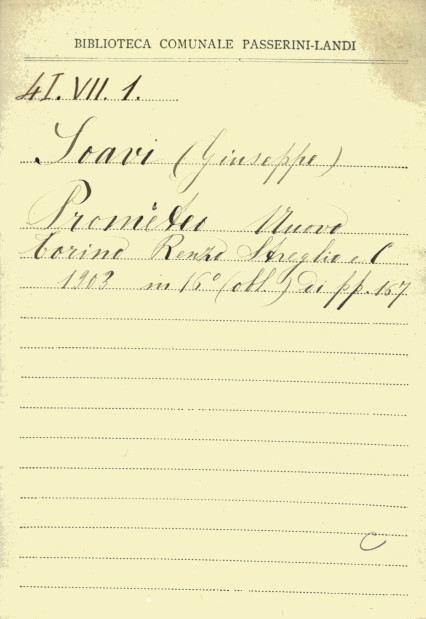 BIBLIOTECA COMUNALE PASSERINI-LANDI
4I.VII.1.
Soavi (Giuseppe)
Prometeo Nuovo
Torino Renzo Streglio e C
1903 in 16° (obl.) di pp. 167
C